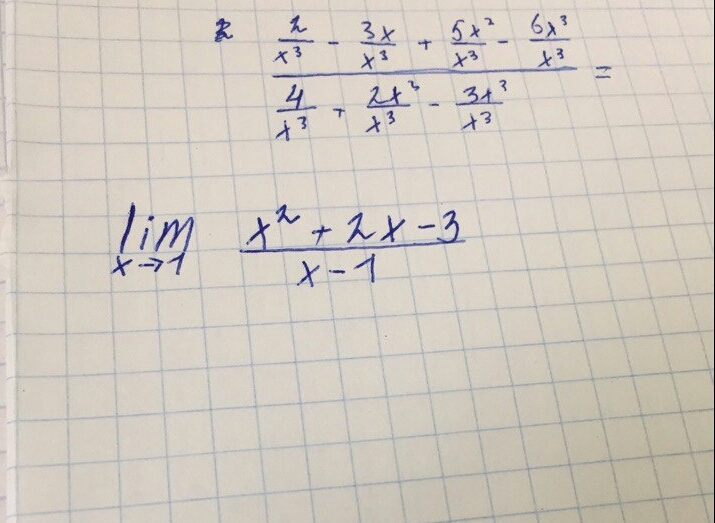 2/x³ - 3x/x³ + 5x²/x³ - 6x³/x³
=
4/x³ + 2x³/x³ - 3x³/x³
lim x→1 x² + 2x - 3 / x - 1